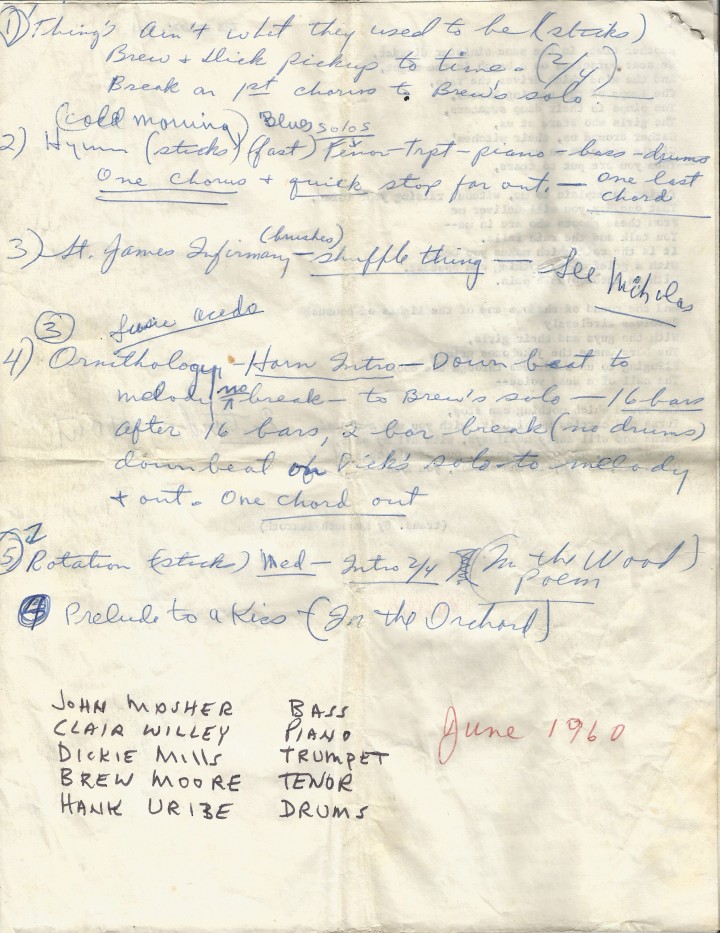 1) Thing's Ain't what they used to be (sticks)
Brew + Dick pickup to time. (2/4)
Break on 1st chorus to Brew's solo
(cold morning) Blues solos
2) Hymn (sticks) (fast) Tenor-Trpt-piano-bass-drums
One chorus + quick stop far out. — one last
chord
3) St. James Infirmary (brushes) — shuffle thing — See Nicholas
3
4) Ornithology - Horn Intro - Down beat to
melody no break - to Brew's solo — 16 bars
after 16 bars, 2 bar break (no drums)
down beat of Dick's solo to melody
+ out. One chord out
2
5) Rotation (sticks) Med - Intro 2/4 (In the Wood)
Poem
4 Prelude to a Kiss - (In the Orchard)
JOHN MOSHER BASS
CLAIR WILLEY PIANO
DICKIE MILLS TRUMPET
BREW MOORE TENOR
HANK URIBE DRUMS
June 1960